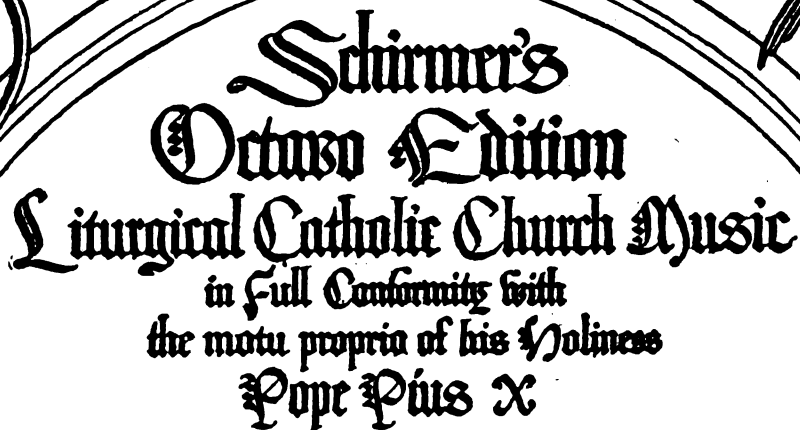 Schirmer's
Octavo Edition
Liturgical Catholic Church Music
in Full Conformity with
the motu proprio of his Holiness
Pope Pius X